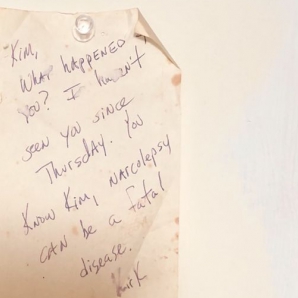 Kim,
What happened
you? I haven't
seen you since
Thursday. You
Know Kim, narcolepsy
can be a fatal
disease.
Kirk